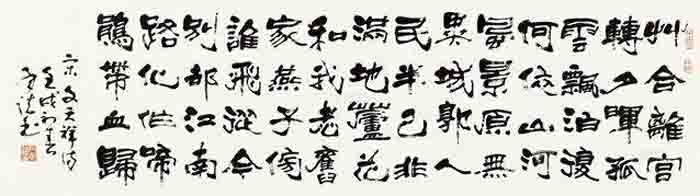 艸合離宮
轉夕暉孤
雲飄泊復
何依山河
風景原無
異城郭人
民半已非
滿地蘆花
和我老舊
家燕子傍
誰飛從今
別却江南
路化作啼
鵑帶血歸
宋文天祥詩
壬戌初春